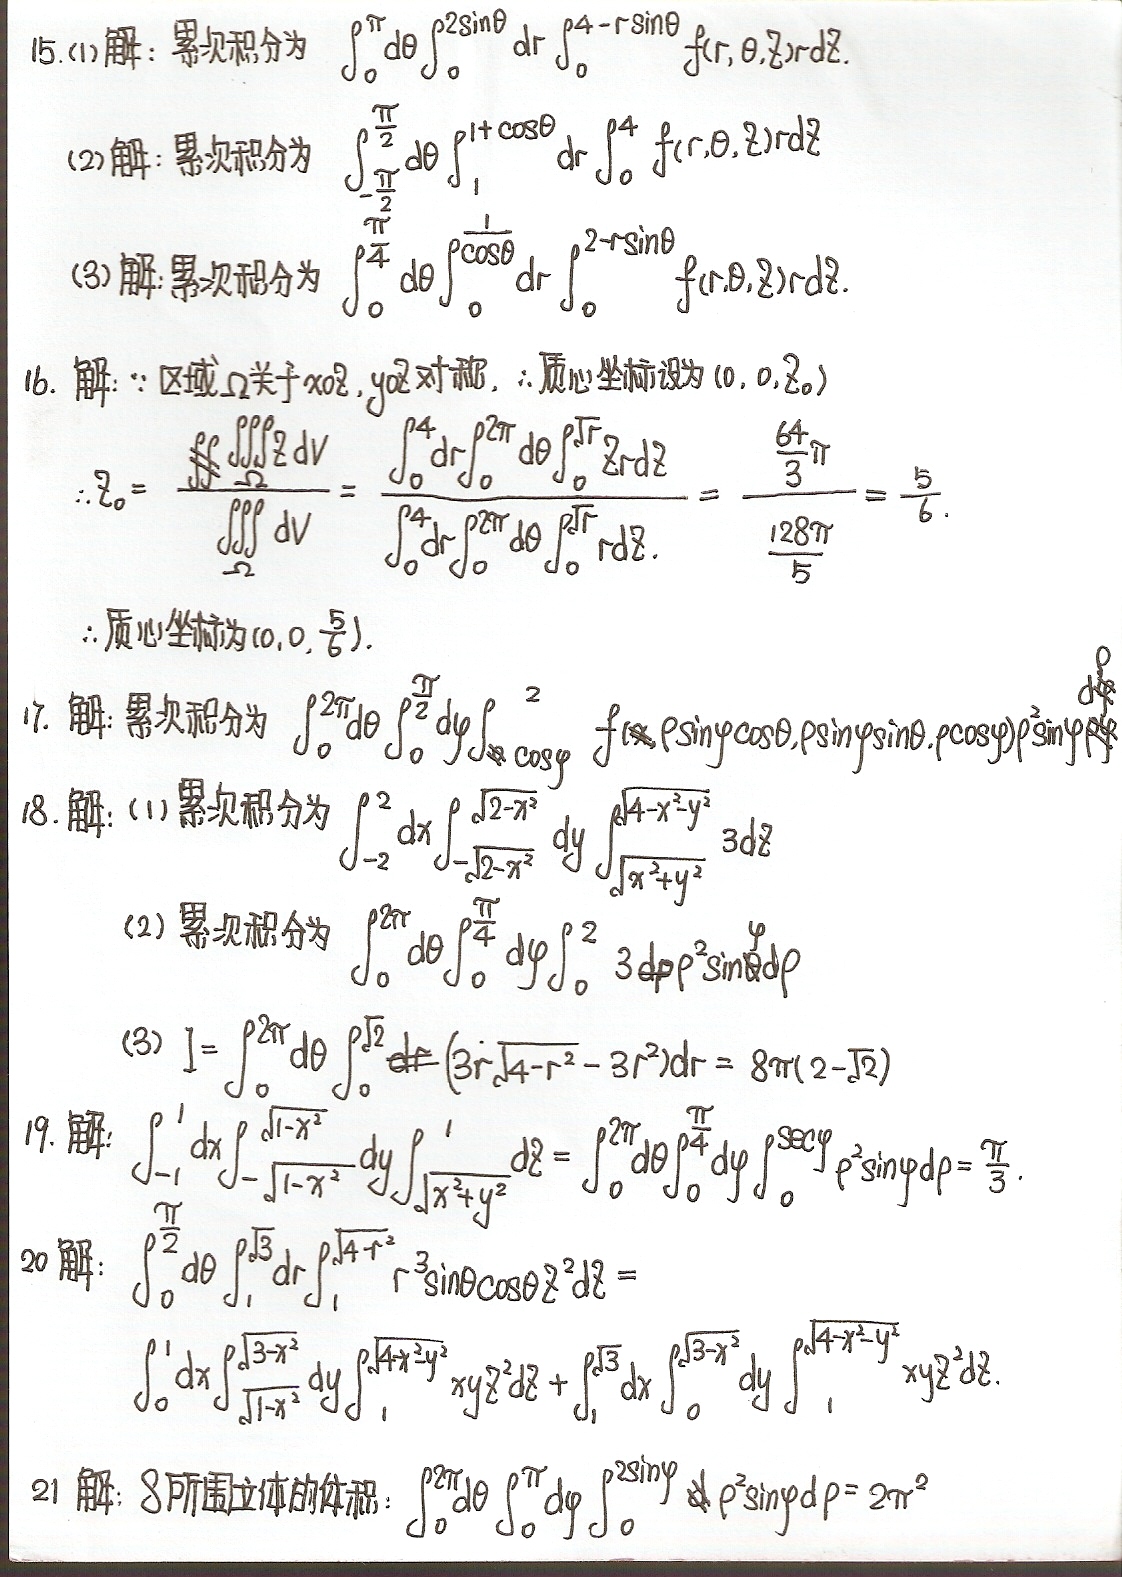 15.(1)解: 累次积分为 ∫₀^π dθ ∫₀^{2sinθ} dr ∫₀^{4-rsinθ} f(r,θ,z)rdz.
(2)解: 累次积分为 ∫_{-π/2}^{π/2} dθ ∫₁^{1+cosθ} dr ∫₀^4 f(r,θ,z)rdz
(3)解: 累次积分为 ∫₀^{π/4} dθ ∫₀^{1/cosθ} dr ∫₀^{2-rsinθ} f(r,θ,z)rdz.
16. 解: ∵ 区域Ω关于xoz, yoz对称, ∴ 质心坐标设为(0, 0, z₀)
∴ z₀ = ∭_Ω z dV / ∭_Ω dV = ∫₀^4 dr ∫₀^{2π} dθ ∫₀^{√r} zrdz / ∫₀^4 dr ∫₀^{2π} dθ ∫₀^{√r} rdz. = (64/3 π) / (128π/5) = 5/6.
∴ 质心坐标为(0, 0, 5/6).
17. 解: 累次积分为 ∫₀^{2π} dθ ∫₀^{π/2} dφ ∫_{cosφ}^2 f(ρsinφcosθ, ρsinφsinθ, ρcosφ)ρ²sinφ dρ
18. 解: (1) 累次积分为 ∫_{-2}^2 dx ∫_{-√(2-x²)}^{√(2-x²)} dy ∫_{√(x²+y²)}^{√(4-x²-y²)} 3dz
(2) 累次积分为 ∫₀^{2π} dθ ∫₀^{π/4} dφ ∫₀^2 3ρ²sinφdρ
(3) I = ∫₀^{2π} dθ ∫₀^{√2} (3r√(4-r²) - 3r²)dr = 8π(2-√2)
19. 解: ∫_{-1}^1 dx ∫_{-√(1-x²)}^{√(1-x²)} dy ∫_{√(x²+y²)}^1 dz = ∫₀^{2π} dθ ∫₀^{π/4} dφ ∫₀^{secφ} ρ²sinφdρ = π/3.
20 解: ∫₀^{π/2} dθ ∫₁^{√3} dr ∫₁^{√(4-r²)} r³sinθcosθz²dz =
∫₀^1 dx ∫_{√(1-x²)}^{√(3-x²)} dy ∫₁^{√(4-x²-y²)} xyz²dz + ∫₁^{√3} dx ∫₀^{√(3-x²)} dy ∫₁^{√(4-x²-y²)} xyz²dz.
21 解: S所围立体的体积: ∫₀^{2π} dθ ∫₀^π dφ ∫₀^{2sinφ} ρ²sinφdρ = 2π²